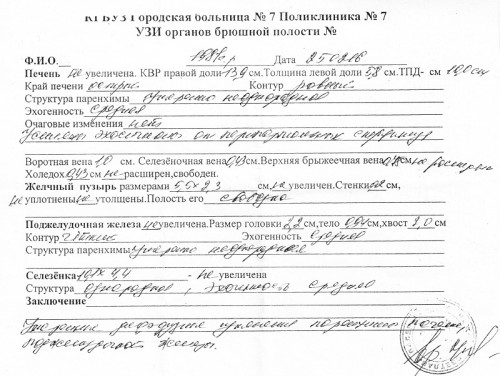 КГБУЗ Городская больница № 7 Поликлиника № 7
УЗИ органов брюшной полости №
Ф.И.О. 1981г р Дата 250216
Печень не увеличена. КВР правой доли 13,9 см. Толщина левой доли 5,8 см. ТПД- см 10,0 см
Край печени острый Контур ровный
Структура паренхимы умеренно неоднородная
Эхогенность средняя
Очаговые изменения нет
Усиление эхосигнала от перипортальных структур
Воротная вена 1,0 см. Селезёночная вена 0,43 см. Верхняя брыжеечная вена не расширены
Холедох 0,43 см не расширен, свободен.
Желчный пузырь размерами 5,5х2,3 см, не увеличен. Стенки см,
не уплотнены не утолщены. Полость его свободна
Поджелудочная железа не увеличена. Размер головки 2,2 см, тело см, хвост 2,0 см
Контур чёткие Эхогенность средняя
Структура паренхимы умеренно неоднородная
Селезёнка х 4,4 - не увеличена
Структура однородная, Эхогенность средняя
Заключение
Умеренные диффузные изменения паренхимы печени,
поджелудочной железы.